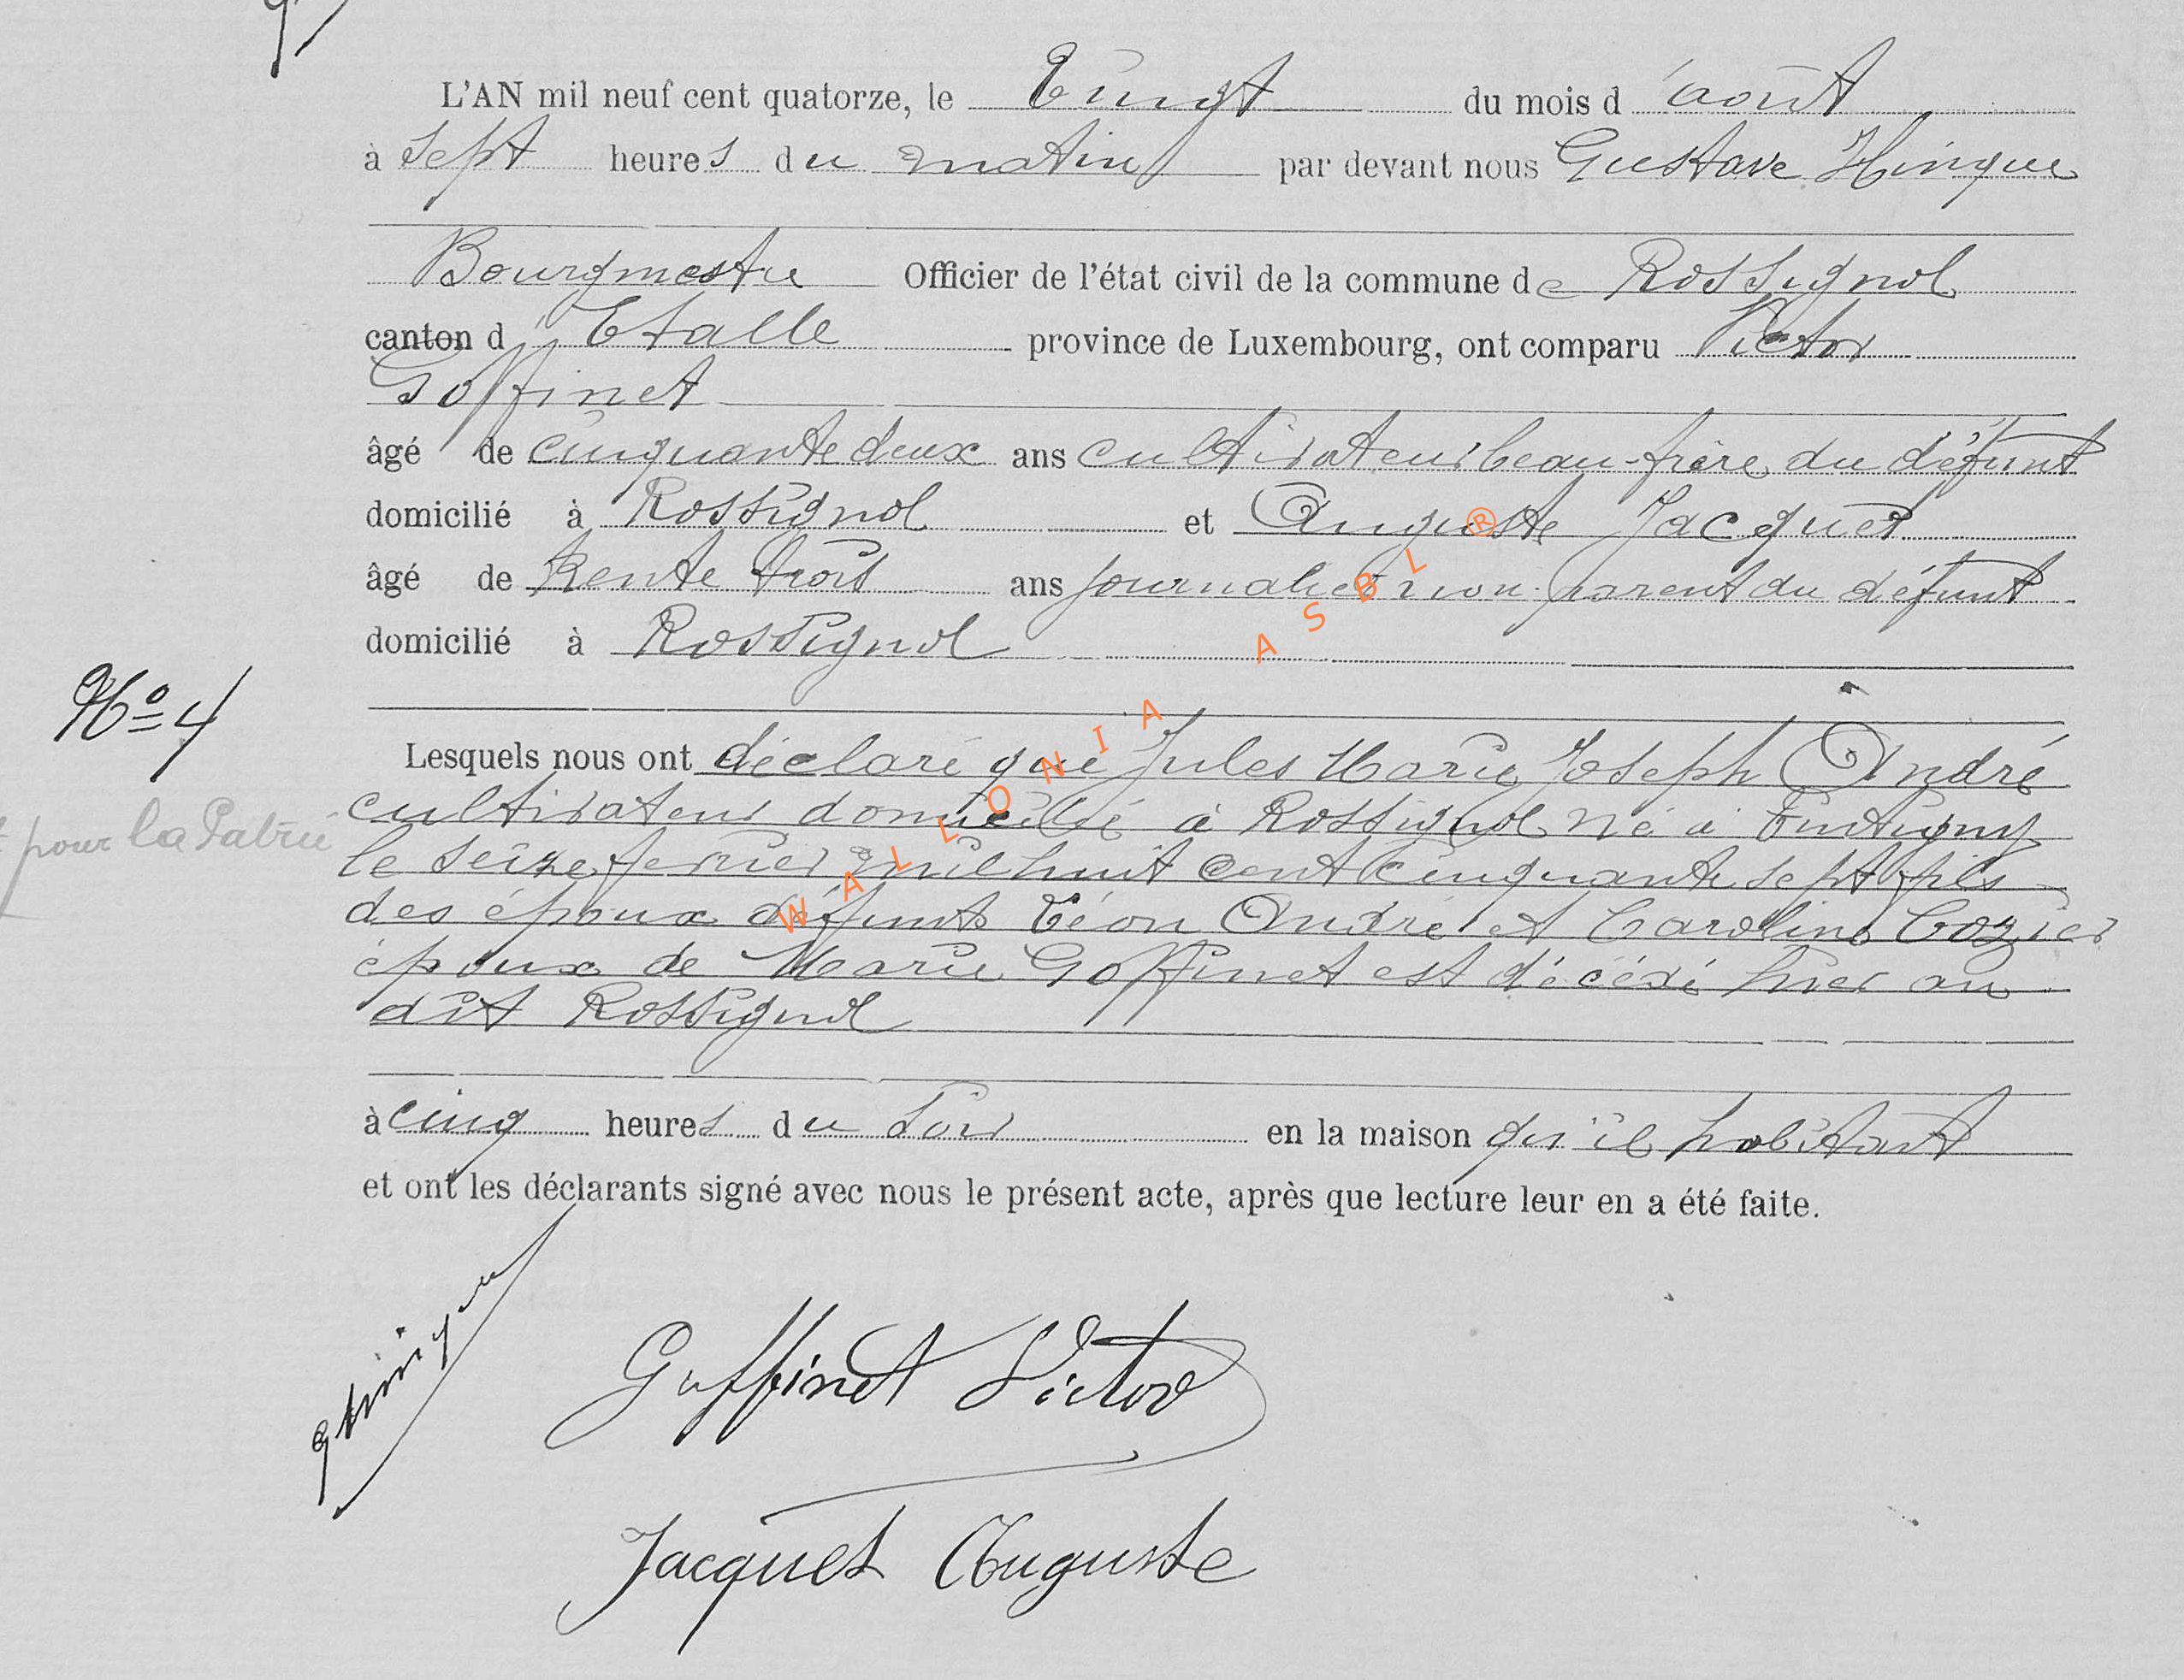 L'AN mil neuf cent quatorze, le Vingt du mois d'août
à sept heures du matin par devant nous Gustave Hinque
Bourgmestre Officier de l'état civil de la commune de Rossignol
canton d'Etalle province de Luxembourg, ont comparu Victor
Goffinet
âgé de cinquante deux ans cultivateur beau-frère du défunt
domicilié à Rossignol et Auguste Jacquet
âgé de trente trois ans journalier non parent du défunt
domicilié à Rossignol
No 4
Lesquels nous ont déclaré que Jules Marie Joseph André
cultivateur domicilié à Rossignol né à Tintigny
pour la Patrie
le seize fevrier mil huit cent cinquante sept fils
des époux défunts Léon André et Caroline Cozier
époux de Marie Goffinet est décédé hier au
dit Rossignol
à cinq heures du soir en la maison qu'il habitait
et ont les déclarants signé avec nous le présent acte, après que lecture leur en a été faite.
GHinque
Goffinet Victor
Jacquet Auguste
WALLONIA ASBL ®